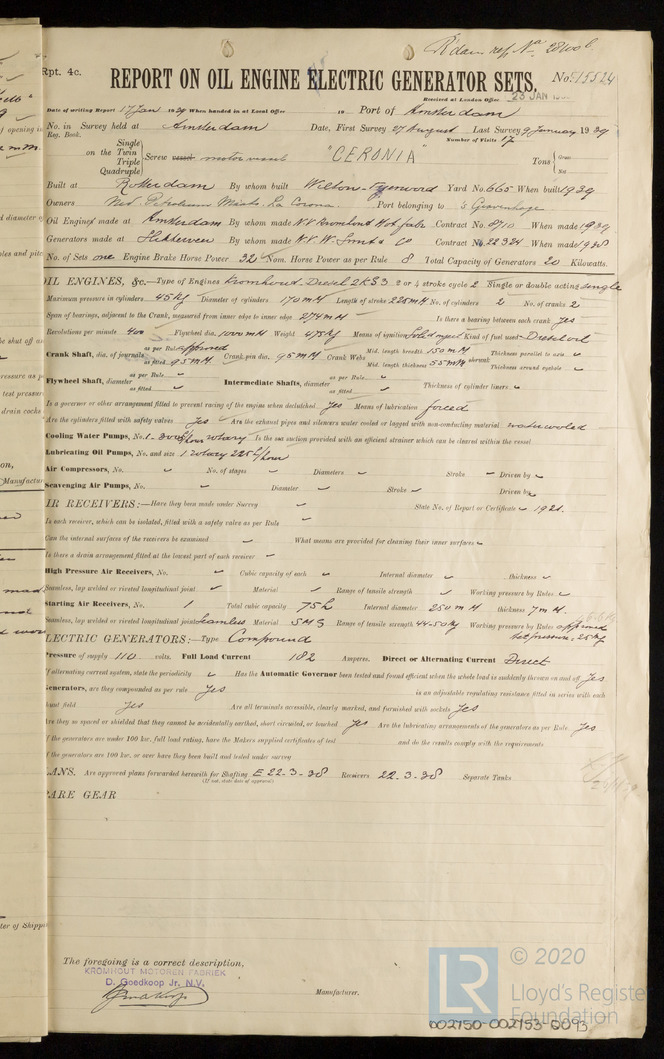 R'dam rep. No. 28100b
Rpt. 4c.
REPORT ON OIL ENGINE ELECTRIC GENERATOR SETS.
No. 15524
Received at London Office 23 JAN
Date of writing Report 17 Jan 1939 When handed in at Local Office 19 Port of Amsterdam
No. in Survey held at Amsterdam Date, First Survey 27 August Last Survey 9 January 1939
Reg. Book. Number of Visits 17
Single
on the Twin
Triple
Quadruple
Screw vessel motor vessel "CERONIA" Tons Gross
Net
Built at Rotterdam By whom built Wilton-Fyenoord Yard No. 665 When built 1939
Owners Ned. Petroleum Maats. La Corona. Port belonging to 's Gravenhage
Oil Engines made at Amsterdam By whom made N.V. Kromhout Mot. fabr. Contract No. 8710 When made 1939
Generators made at Slikkerveer By whom made N.V. W. Smit & Co Contract No. 22324 When made 1938
No. of Sets one Engine Brake Horse Power 32 Nom. Horse Power as per Rule 8 Total Capacity of Generators 20 Kilowatts.
OIL ENGINES, &c.—Type of Engines Kromhout Diesel 2KS3 2 or 4 stroke cycle 2 Single or double acting single
Maximum pressure in cylinders 45 Kg Diameter of cylinders 170 mm Length of stroke 225 mm No. of cylinders 2 No. of cranks 2
Span of bearings, adjacent to the Crank, measured from inner edge to inner edge 274 mm Is there a bearing between each crank yes
Revolutions per minute 400 Flywheel dia. 1000 mm Weight 475 Kg Means of ignition Solid inject. Kind of fuel used Diesel oil
Crank Shaft, dia. of journals as per Rule approved as fitted 95 mm Crank pin dia. 95 mm Crank Webs Mid. length breadth 150 mm Mid. length thickness 55 mm shrunk Thickness parallel to axis Thickness around eyehole
Flywheel Shaft, diameter as per Rule as fitted Intermediate Shafts, diameter as per Rule as fitted Thickness of cylinder liners
Is a governor or other arrangement fitted to prevent racing of the engine when declutched Yes Means of lubrication forced
Are the cylinders fitted with safety valves Yes Are the exhaust pipes and silencers water cooled or lagged with non-conducting material watercooled
Cooling Water Pumps, No. 1 - 3000 L/hour rotary Is the sea suction provided with an efficient strainer which can be cleared within the vessel
Lubricating Oil Pumps, No. and size 1 rotary 225 L/hour
Air Compressors, No. No. of stages Diameters Stroke Driven by
Scavenging Air Pumps, No. Diameter Stroke Driven by
AIR RECEIVERS:—Have they been made under Survey State No. of Report or Certificate 1921.
Is each receiver, which can be isolated, fitted with a safety valve as per Rule
Can the internal surfaces of the receivers be examined What means are provided for cleaning their inner surfaces
Is there a drain arrangement fitted at the lowest part of each receiver
High Pressure Air Receivers, No. Cubic capacity of each Internal diameter thickness
Seamless, lap welded or riveted longitudinal joint Material Range of tensile strength Working pressure by Rules
Starting Air Receivers, No. 1 Total cubic capacity 75 L Internal diameter 250 mm thickness 7 mm.
Seamless, lap welded or riveted longitudinal joint Seamless Material SMS Range of tensile strength 44-50 Kg Working pressure by Rules approved
set pressure: 25 Kg
ELECTRIC GENERATORS:—Type Compound
Pressure of supply 110 volts. Full Load Current 182 Amperes. Direct or Alternating Current Direct
If alternating current system, state the periodicity Has the Automatic Governor been tested and found efficient when the whole load is suddenly thrown on and off Yes
Generators, are they compounded as per rule Yes is an adjustable regulating resistance fitted in series with each
shunt field Yes Are all terminals accessible, clearly marked, and furnished with sockets Yes
Are they so spaced or shielded that they cannot be accidentally earthed, short circuited, or touched Yes Are the lubricating arrangements of the generators as per Rule. Yes
If the generators are under 100 kw. full load rating, have the Makers supplied certificates of test and do the results comply with the requirements
If the generators are 100 kw. or over have they been built and tested under survey
PLANS. Are approved plans forwarded herewith for Shafting E 22-3-38 Receivers 22.3-38 Separate Tanks
(If not, state date of approval)
SPARE GEAR
The foregoing is a correct description,
KROMHOUT MOTOREN FABRIEK
D. Goedkoop Jr. N.V.
Manufacturer.
LR
© 2020
Lloyd's Register
Foundation
002750-002753-0093